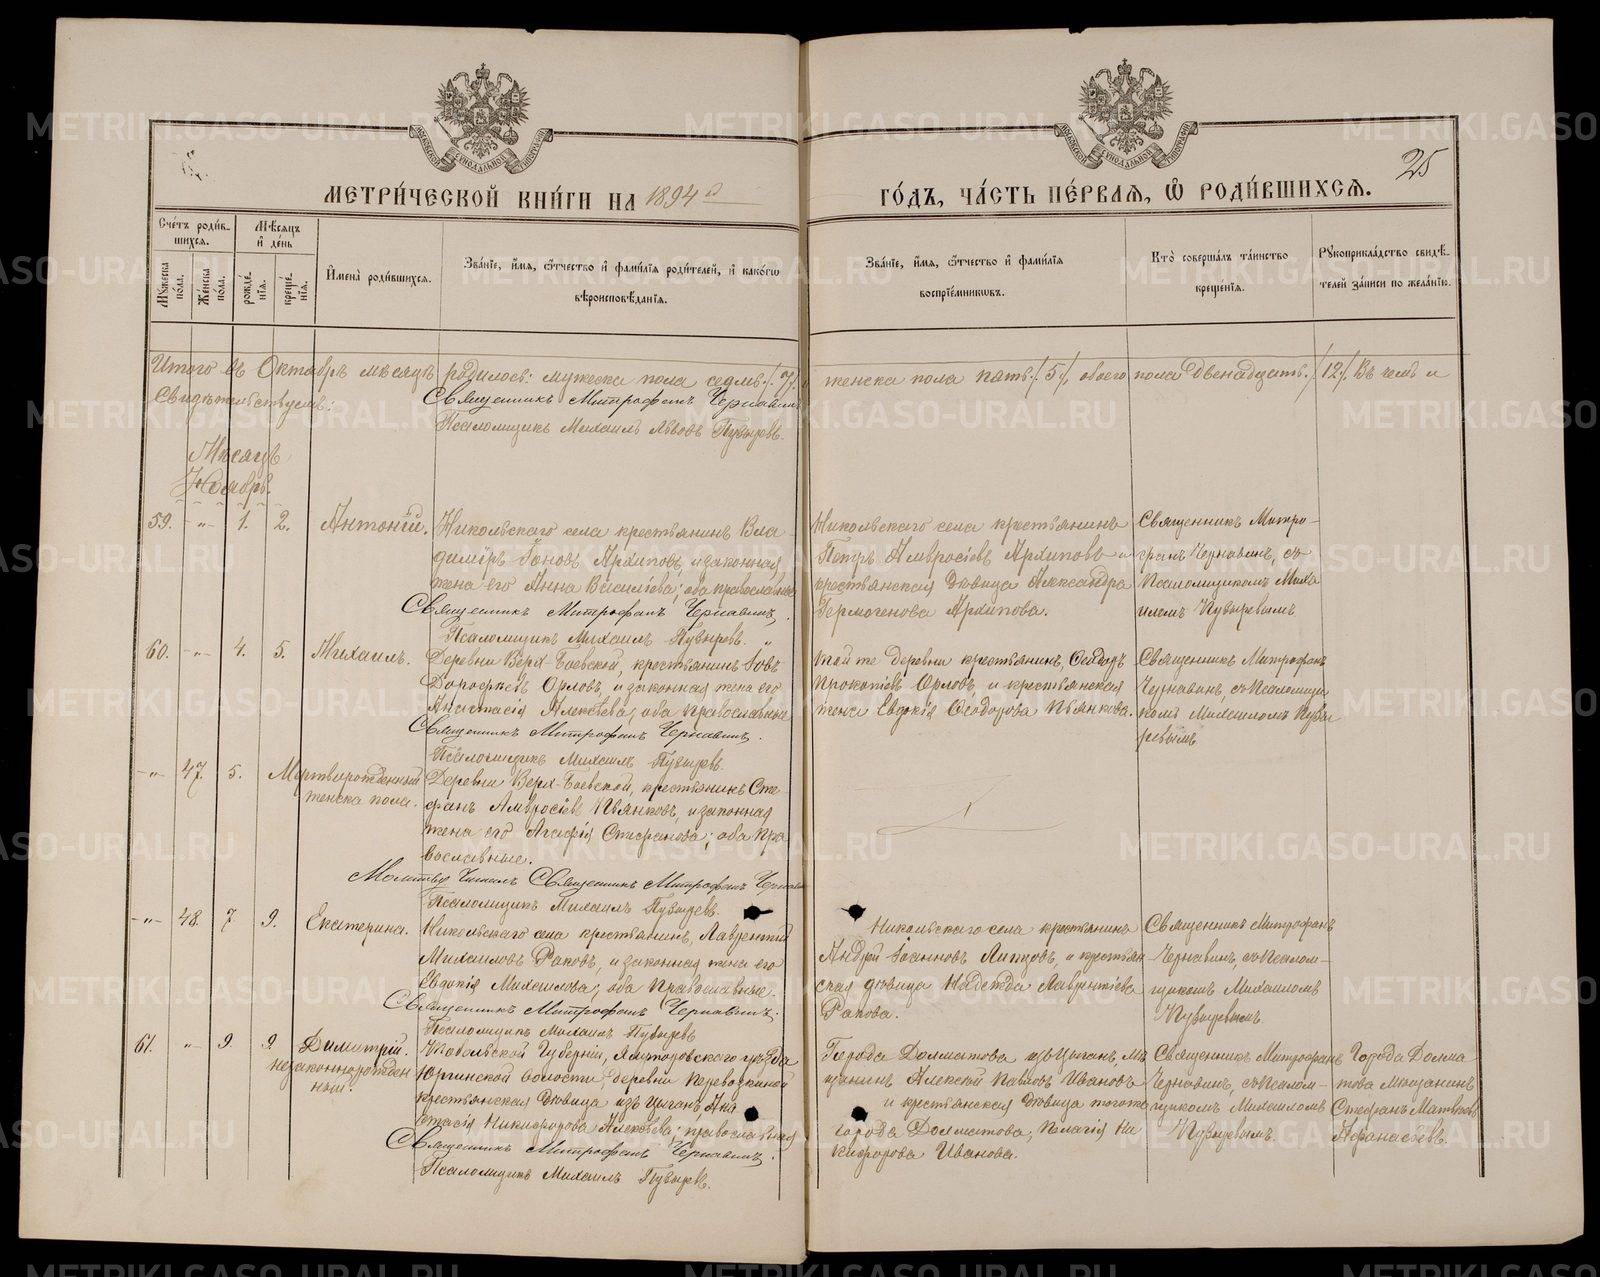 МОСКОВСКОЙ СѴНОДАЛЬНОЙ ТИПОГРАФІИ
МОСКОВСКОЙ СѴНОДАЛЬНОЙ ТИПОГРАФІИ
25
МЕТРИ́ЧЕСКОЙ КНИ́ГИ НА 1894 й
ГО́ДЪ, ЧА́СТЬ ПЕ́РВАЯ, Ѿ РОДИ́ВШИХСЯ.
Сче́тъ роди́в-
шихся.
Мѣсяцъ
и҆ де́нь
Му́жеска по́ла.
Же́нска по́ла.
рожде́-
нія.
креще́-
нія.
И҆мена̀ роди́вшихся.
Зва́ніе, и҆́мя, ѻ҆́тчество и҆ фами́лія роди́телей, и҆ како́гѡ
вѣроисповѣ́данія.
Зва́ніе, и҆́мя, ѻ҆́тчество и҆ фами́лія
воспріе́мникѡвъ.
Кто̀ соверша́лъ та́инство
креще́нія.
Рꙋкоприкла́дство свидѣ́-
телей за́писи по жела́нію.
Итого въ Октябрѣ мѣсяцѣ родилось: мужеска пола седмь /7/ и женска пола пять /5/, обоего пола двенадцать /12/ Въ чемъ и
Свидѣтельствуемъ: Священникъ Митрофанъ Чернавинъ
Псаломщикъ Михаилъ Львовъ Пузыревъ.
Мѣсяцъ
Ноябрь.
59. -„- 1. 2. Антоній.
Никольскаго села крестьянинъ Вла
димиръ Іоновъ Архиповъ, и законная
жена его Анна Василіева; оба православные
Священникъ Митрофанъ Чернавинъ.
Псаломщикъ Михаилъ Пузыревъ.
Никольскаго села крестьянинъ
Петръ Амвросіевъ Архиповъ и
крестьянская дѣвица Александра
Гермогенова Архипова.
Священникъ Митро-
фанъ Чернавинъ, съ
Псаломщикомъ Миха
иломъ Пузыревымъ
60. -„- 4. 5. Михаилъ.
Деревни Верх-Боевской, крестьянинъ Іовъ
Дорофѣевъ Орловъ, и законная жена его
Анастасія Алексѣева; оба православные
Священникъ Митрофанъ Чернавинъ.
Псаломщикъ Михаилъ Пузыревъ.
той же деревни крестьянинъ, Ѳеодоръ
Прокопіевъ Орловъ, и крестьянская
жена Евдокія Ѳеодорова Пьянкова.
Священникъ Митрофанъ
Чернавинъ, съ Псаломщи
комъ Михаиломъ Пузы
ревымъ
-„- 47. 5. Мертворожденный
женска пола.
Деревни Верх-Боевской, крестьянинъ Сте
фанъ Амвросіевъ Пьянковъ, и законная
жена его Агафія Стефанова; оба пра
вославные.
Молитву читалъ Священникъ Митрофанъ Чернавинъ
Псаломщикъ Михаилъ Пузыревъ.
-„- 48. 7 9. Екатерина.
Никольскаго села крестьянинъ, Лаврентій
Михаиловъ Раковъ, и законная жена его
Евдокія Михаилова; оба православные.
Священникъ Митрофанъ Чернавинъ.
Псаломщикъ Михаилъ Пузыревъ
Никольскаго села крестьянинъ
Андрей Іоанновъ Липцовъ, и крестьян
ская дѣвица Надежда Лаврентіева
Ракова.
Священникъ Митрофанъ
Чернавинъ, съ Псалом-
щикомъ Михаиломъ
Пузыревымъ
61. „ 9 9. Димитрій.
незаконнорожден
ный.
Тобольской Губерніи, Ялуторовскаго уѣзда
Юргинской волости, деревни Перевозкиной
крестьянская дѣвица изъ цыганъ Ана
стасія Никифорова Алексѣева; православная
Священникъ Митрофанъ Чернавинъ.
Псаломщикъ Михаилъ Пузыревъ.
Города Долматова изъ цыганъ, мѣ
щанинъ Алексѣй Павловъ Ивановъ
и крестьянская дѣвица того же
города Долматова, Пелагія Ни
кифорова Иванова.
Священникъ Митрофанъ
Чернавинъ, съ Псалом-
щикомъ Михаиломъ
Пузыревымъ.
Города Долма
това мѣщанинъ
Стефанъ Матвѣевъ
Афанасьевъ.
METRIKI.GASO-URAL.RU